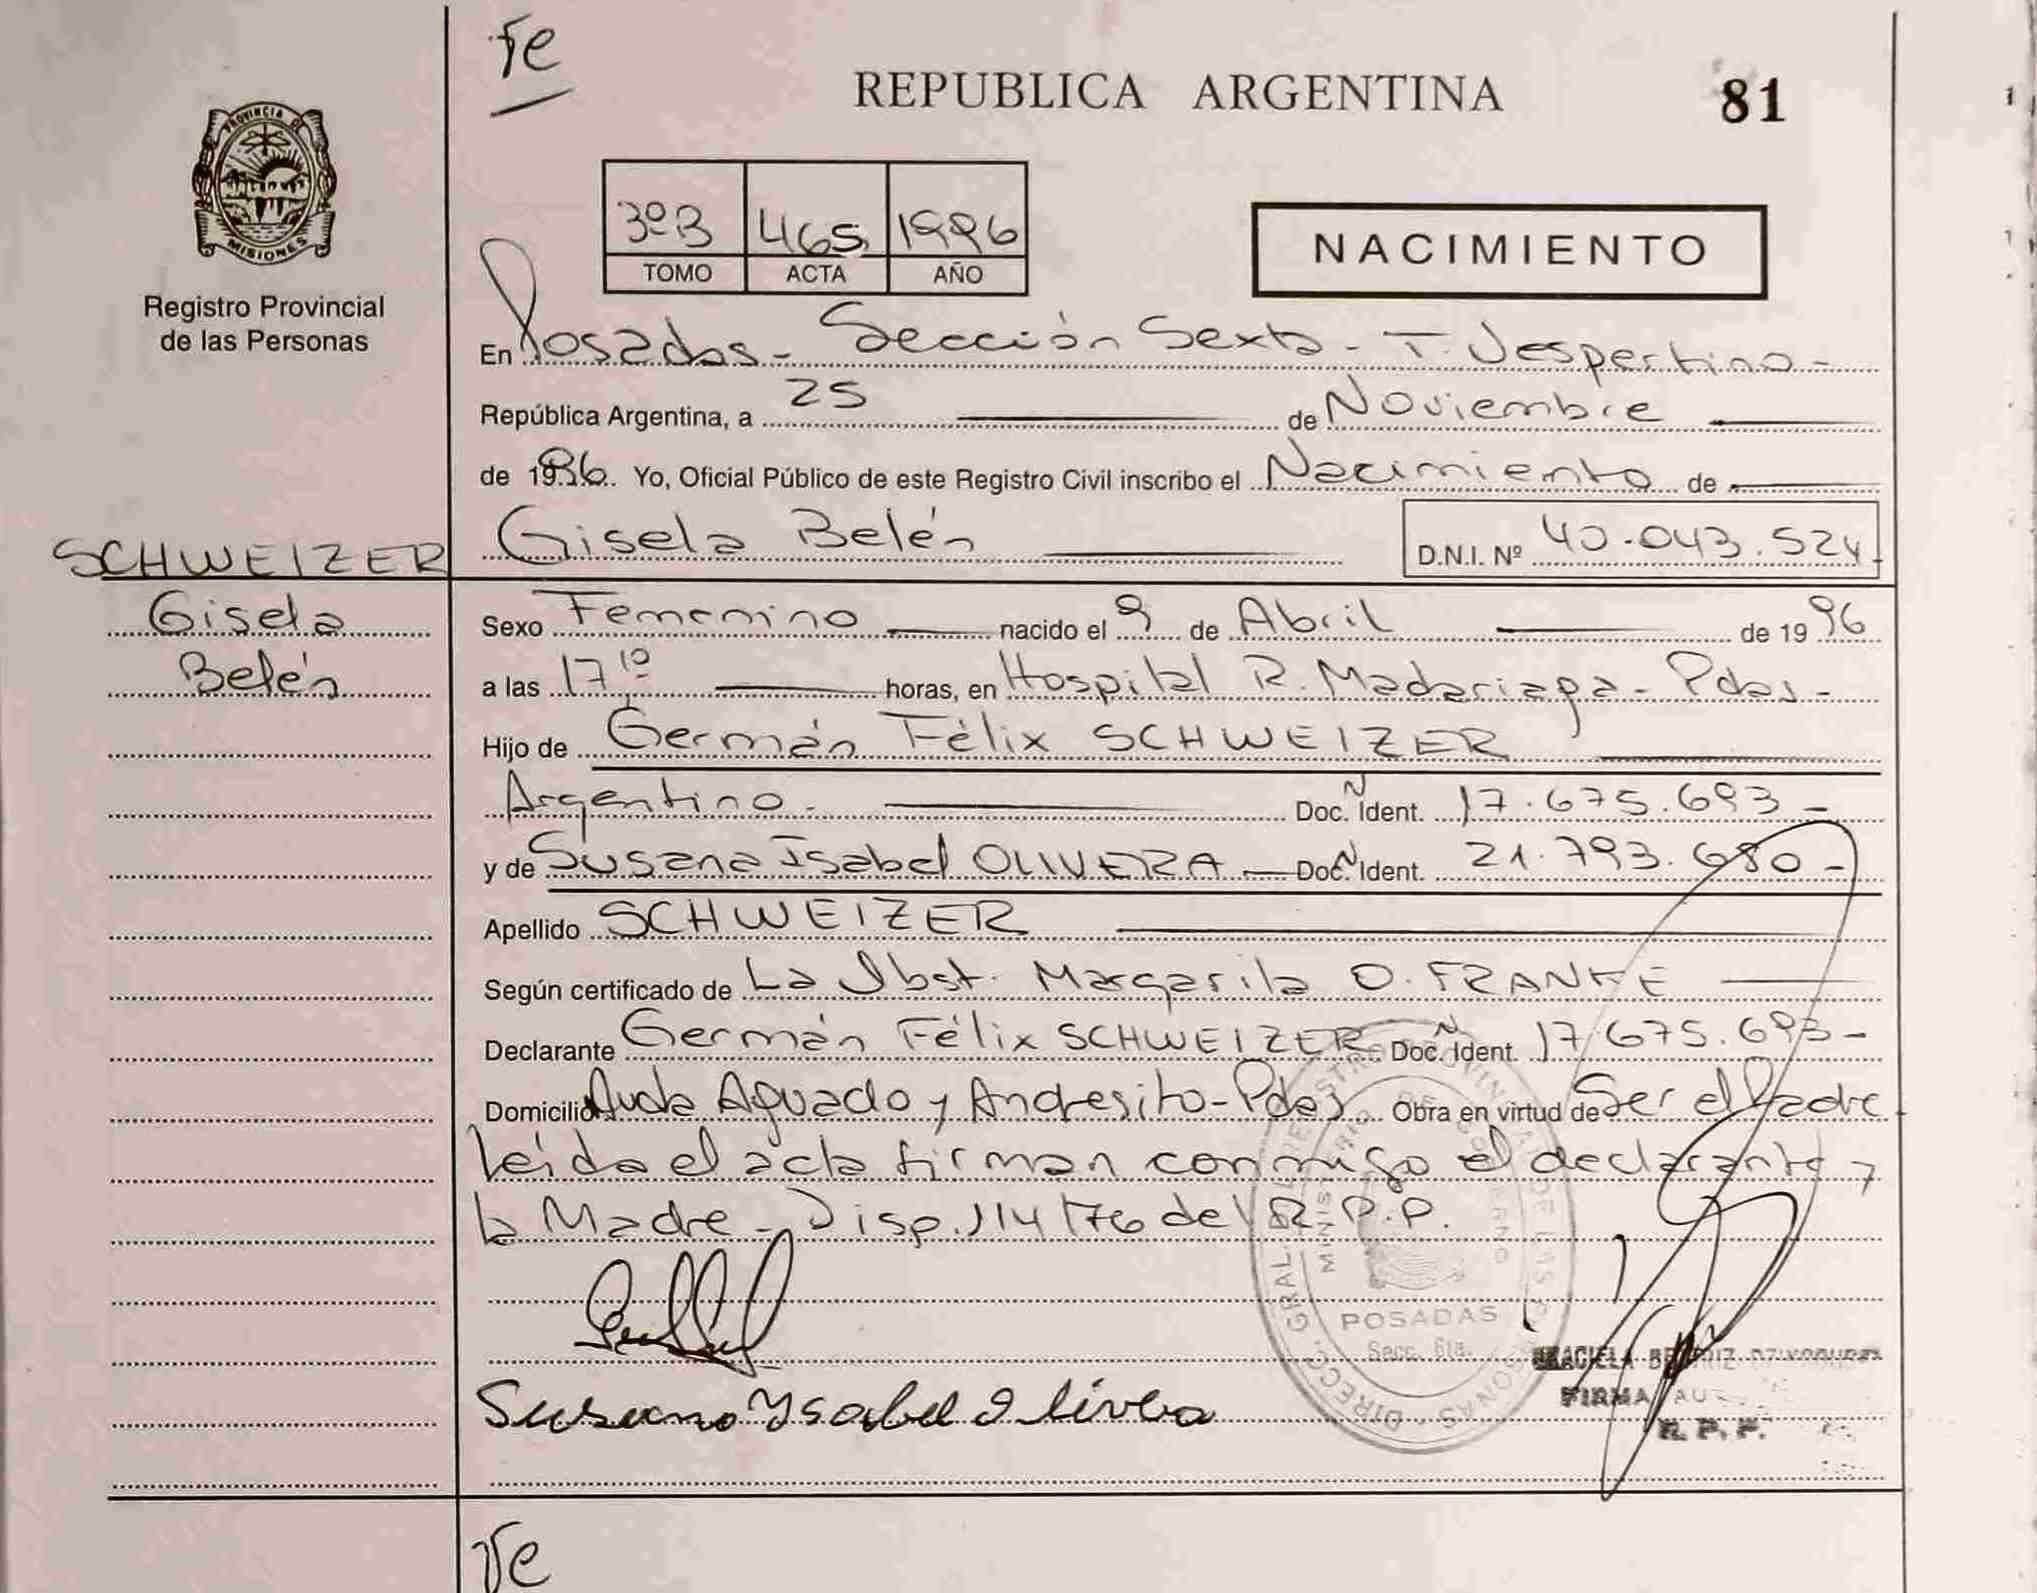 fe
REPUBLICA ARGENTINA
81
PROVINCIA DE
MISIONES
Registro Provincial
de las Personas
3ºB 465 1996
TOMO ACTA AÑO
NACIMIENTO
En Posadas - Sección Sexta - T. Vespertino -
República Argentina, a 25 de Noviembre
de 1996. Yo, Oficial Público de este Registro Civil inscribo el Nacimiento de
Gisela Belén
D.N.I. Nº 40.043.524
SCHWEIZER
Gisela
Belén
Sexo Femenino nacido el 9 de Abril de 19 96
a las 17 10 horas, en Hospital R. Madariaga - Pdas -
Hijo de Germán Félix SCHWEIZER
Argentino - Doc. N Ident. 17.675.693 -
y de Susana Isabel OLIVERA - Doc. N Ident. 21.793.680 -
Apellido SCHWEIZER
Según certificado de La Obst. Margarita O. FRANKE
Declarante Germán Félix SCHWEIZER Doc. N Ident. 17.675.693 -
Domicilio Avda Aguado y Andresito - Pdas Obra en virtud de Ser el Padre
Leída el acta firman conmigo el declarante y
la Madre - Disp. 114/76 del R.P.P.
Susana Ysabel Olivera
POSADAS
Secc. 6ta.
GRACIELA BEATRIZ
FIRMA
R. P. P.
fe